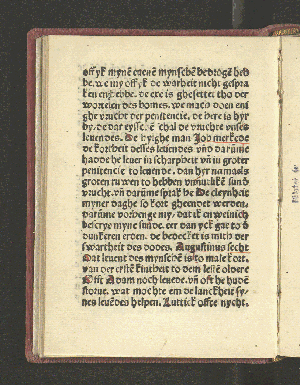 off yk mynē euenē mynschē bedrogē heb
be. vñ my off yk de warheit nicht gespra
ken enhebbe. de exe is ghesettet tho der
wortelen des bomes. we maco doen eni
ghe vrucht der penitencie. de here is hyr
by. de dar eysschē schal de vruchte vnses
leuendes. De hyghe man Job merkede
de kortheit desses leuendes vnd darūme
hadde he leuer in scharpheit vñ in groter
penitencie to leuende. dan hyr namaels
groten ruwen to hebben vmmutlike sund
vrucht. vñ darūme sprak he De cleynheit
myner daghe so kort gheendet werden.
darūme vorlenge my. dat ik en weinich
bescrye myne sunde. eer dan yck gae to d
dunkeren erden. de bedecket is mith der
swartheit des dodes. Augustinus secht
Dat leuent des mynschē is to male kort.
van der erstē kintheit to dem lestē oldere
Offt Adam noch leuede. vñ oft he huden
storue. wat mochte em de lanckheit sy-
nes leuēdes helpen. Luttick offte nycht.